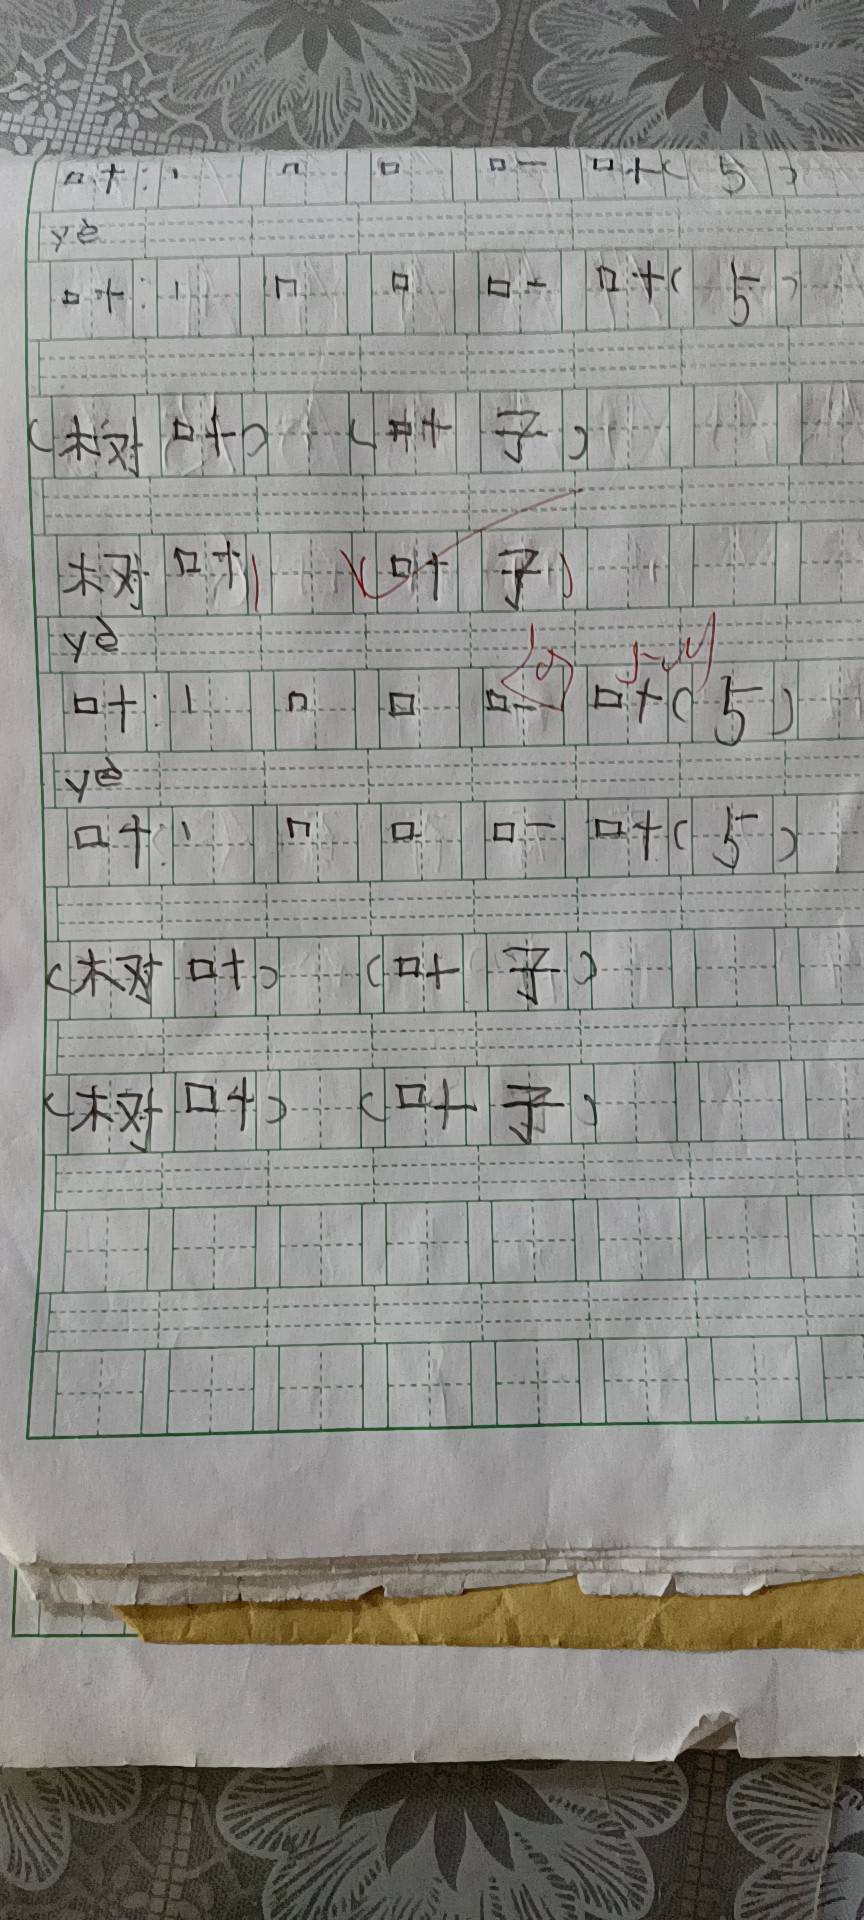 叶：丨 𠃍 口 口一 叶（5）
yè
叶：丨 冂 口 口一 叶（5）
（树叶） （叶子）
树叶） （叶子）
yè
叶：丨 冂 口 口一 叶（5）
yè
叶：丨 冂 口 口一 叶（5）
（树叶） （叶子）
（树叶） （叶子）